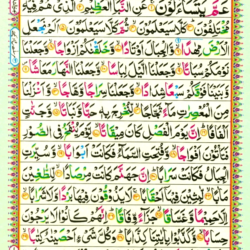 عَمَّ يَتَسَآءَلُوْنَ عَنِ النَّبَاِ الْعَظِيْمِ الَّذِيْ هُمْ فِيْهِ
مُخْتَلِفُوْنَ كَلَّا سَيَعْلَمُوْنَ ثُمَّ كَلَّا سَيَعْلَمُوْنَ اَلَمْ نَجْعَلِ
الْاَرْضَ مِهٰدًا وَّالْجِبَالَ اَوْتَادًا وَّخَلَقْنٰكُمْ اَزْوَاجًا وَّجَعَلْنَا
نَوْمَكُمْ سُبَاتًا وَّجَعَلْنَا الَّيْلَ لِبَاسًا وَّجَعَلْنَا النَّهَارَ مَعَاشًا
وَّبَنَيْنَا فَوْقَكُمْ سَبْعًا شِدَادًا وَّجَعَلْنَا سِرَاجًا وَّهَّاجًا وَّاَنْزَلْنَا
مِنَ الْمُعْصِرٰتِ مَآءً ثَجَّاجًا لِّنُخْرِجَ بِهٖ حَبًّا وَّنَبَاتًا وَّجَنّٰتٍ
اَلْفَافًا اِنَّ يَوْمَ الْفَصْلِ كَانَ مِيْقَاتًا يَّوْمَ يُنْفَخُ فِي الصُّوْرِ
فَتَاْتُوْنَ اَفْوَاجًا وَّفُتِحَتِ السَّمَآءُ فَكَانَتْ اَبْوَابًا وَّسُيِّرَتِ
الْجِبَالُ فَكَانَتْ سَرَابًا اِنَّ جَهَنَّمَ كَانَتْ مِرْصَادًا لِّلطّٰغِيْنَ
مَاٰبًا لّٰبِثِيْنَ فِيْهَآ اَحْقَابًا لَا يَذُوْقُوْنَ فِيْهَا بَرْدًا وَّلَا شَرَابًا
اِلَّا حَمِيْمًا وَّغَسَّاقًا جَزَآءً وِّفَاقًا اِنَّهُمْ كَانُوْا لَا يَرْجُوْنَ
حِسَابًا وَّكَذَّبُوْا بِاٰيٰتِنَا كِذَّابًا وَكُلَّ شَيْءٍ اَحْصَيْنٰهُ كِتٰبًا